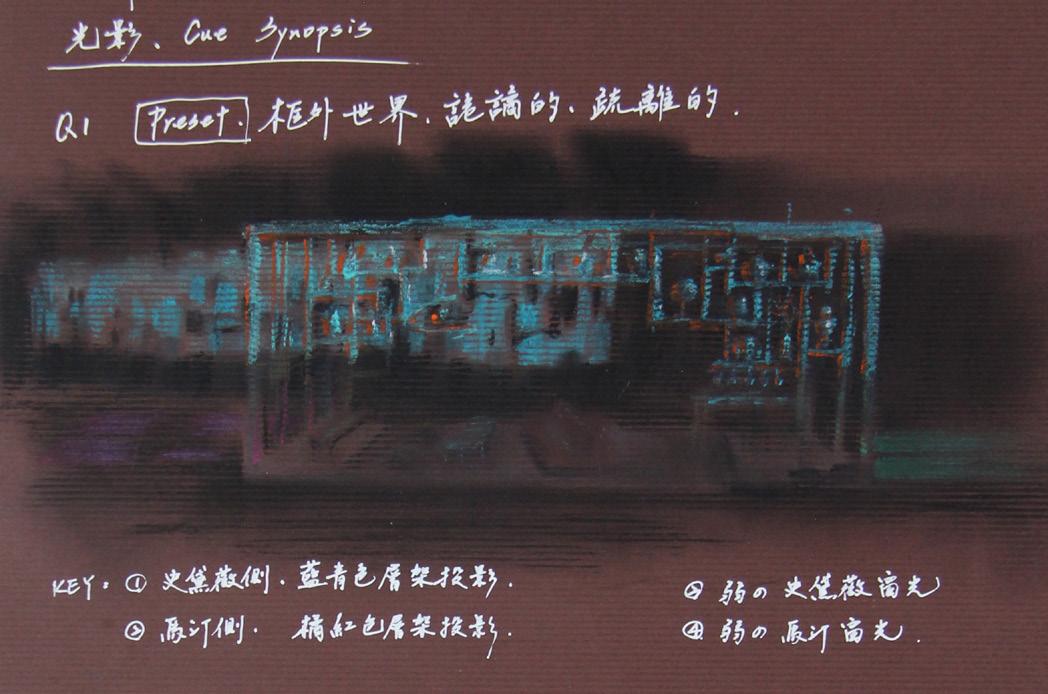 光影、Cue Synopsis
Q1 Preset. 框外世界、詭譎的、疏離的.
KEY: ① 史黛薇側. 藍青色層架投影.
② 馬汀側. 橘紅色層架投影.
③ 弱の史黛薇窗光
④ 弱の馬汀窗光.